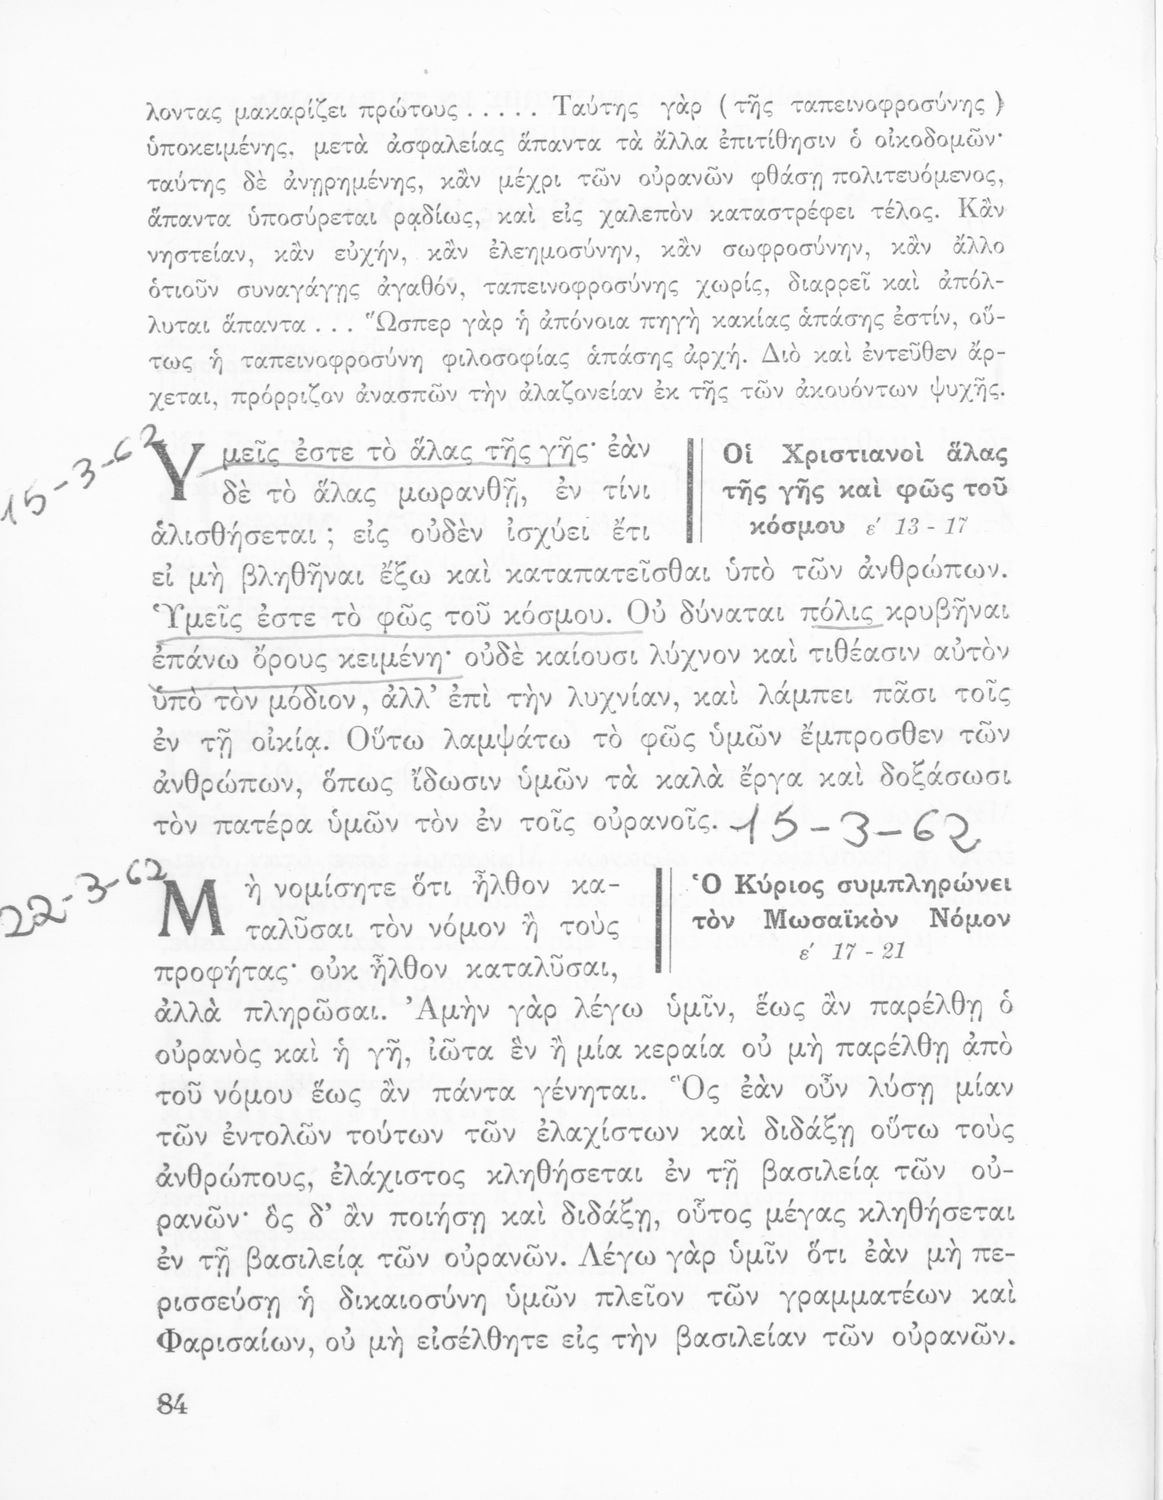 λοντας μακαρίζει πρώτους . . . . . Ταύτης γὰρ ( τῆς ταπεινοφροσύνης )
ὑποκειμένης, μετὰ ἀσφαλείας ἅπαντα τὰ ἄλλα ἐπιτίθησιν ὁ οἰκοδομῶν·
ταύτης δὲ ἀνῃρημένης, κἂν μέχρι τῶν οὐρανῶν φθάσῃ πολιτευόμενος,
ἅπαντα ὑποσύρεται ρᾳδίως, καὶ εἰς χαλεπὸν καταστρέφει τέλος. Κἂν
νηστείαν, κἂν εὐχήν, κἂν ἐλεημοσύνην, κἂν σωφροσύνην, κἂν ἄλλο
ὁτιοῦν συναγάγῃς ἀγαθόν, ταπεινοφροσύνης χωρίς, διαρρεῖ καὶ ἀπόλ-
λυται ἅπαντα . . . Ὥσπερ γὰρ ἡ ἀπόνοια πηγὴ κακίας ἁπάσης ἐστίν, οὕ-
τως ἡ ταπεινοφροσύνη φιλοσοφίας ἁπάσης ἀρχή. Διὸ καὶ ἐντεῦθεν ἄρ-
χεται, πρόρριζον ἀνασπῶν τὴν ἀλαζονείαν ἐκ τῆς τῶν ἀκουόντων ψυχῆς.
15-3-62
Υμεῖς ἐστε τὸ ἅλας τῆς γῆς· ἐὰν
δὲ τὸ ἅλας μωρανθῇ, ἐν τίνι
ἁλισθήσεται ; εἰς οὐδὲν ἰσχύει ἔτι
Οἱ Χριστιανοὶ ἅλας
τῆς γῆς καὶ φῶς τοῦ
κόσμου ε΄ 13 - 17
εἰ μὴ βληθῆναι ἔξω καὶ καταπατεῖσθαι ὑπὸ τῶν ἀνθρώπων.
Ὑμεῖς ἐστε τὸ φῶς τοῦ κόσμου. Οὐ δύναται πόλις κρυβῆναι
ἐπάνω ὄρους κειμένη· οὐδὲ καίουσι λύχνον καὶ τιθέασιν αὐτὸν
ὑπὸ τὸν μόδιον, ἀλλ’ ἐπὶ τὴν λυχνίαν, καὶ λάμπει πᾶσι τοῖς
ἐν τῇ οἰκίᾳ. Οὕτω λαμψάτω τὸ φῶς ὑμῶν ἔμπροσθεν τῶν
ἀνθρώπων, ὅπως ἴδωσιν ὑμῶν τὰ καλὰ ἔργα καὶ δοξάσωσι
τὸν πατέρα ὑμῶν τὸν ἐν τοῖς οὐρανοῖς. 15-3-62
22-3-62
Μὴ νομίσητε ὅτι ἦλθον κα-
ταλῦσαι τὸν νόμον ἢ τοὺς
προφήτας· οὐκ ἦλθον καταλῦσαι,
Ὁ Κύριος συμπληρώνει
τὸν Μωσαϊκὸν Νόμον
ε΄ 17 - 21
ἀλλὰ πληρῶσαι. Ἀμὴν γὰρ λέγω ὑμῖν, ἕως ἂν παρέλθῃ ὁ
οὐρανὸς καὶ ἡ γῆ, ἰῶτα ἓν ἢ μία κεραία οὐ μὴ παρέλθῃ ἀπὸ
τοῦ νόμου ἕως ἂν πάντα γένηται. Ὃς ἐὰν οὖν λύσῃ μίαν
τῶν ἐντολῶν τούτων τῶν ἐλαχίστων καὶ διδάξῃ οὕτω τοὺς
ἀνθρώπους, ἐλάχιστος κληθήσεται ἐν τῇ βασιλείᾳ τῶν οὐ-
ρανῶν· ὃς δ’ ἂν ποιήσῃ καὶ διδάξῃ, οὗτος μέγας κληθήσεται
ἐν τῇ βασιλείᾳ τῶν οὐρανῶν. Λέγω γὰρ ὑμῖν ὅτι ἐὰν μὴ πε-
ρισσεύσῃ ἡ δικαιοσύνη ὑμῶν πλεῖον τῶν γραμματέων καὶ
Φαρισαίων, οὐ μὴ εἰσέλθητε εἰς τὴν βασιλείαν τῶν οὐρανῶν.
84